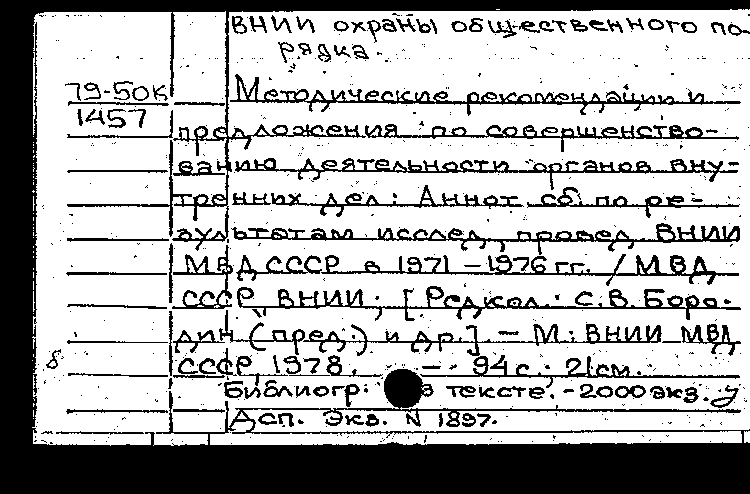 ВНИИ охраны общественного по-
рядка.
79-50к
1457
Методические рекомендации и
предложения по совершенство-
ванию деятельности органов вну-
тренних дел: Аннот. сб. по ре-
зультатам исслед., провед. ВНИИ
МВД СССР в 1971-1976 гг. / МВД
СССР, ВНИИ; [Редкол.: С.В. Боро-
дин (пред.) и др.]. - М.: ВНИИ МВД
СССР, 1978. - 94 с.; 21 см.
8
Библиогр: в тексте. - 2000 экз.
Дсп. Экз. N 1897.